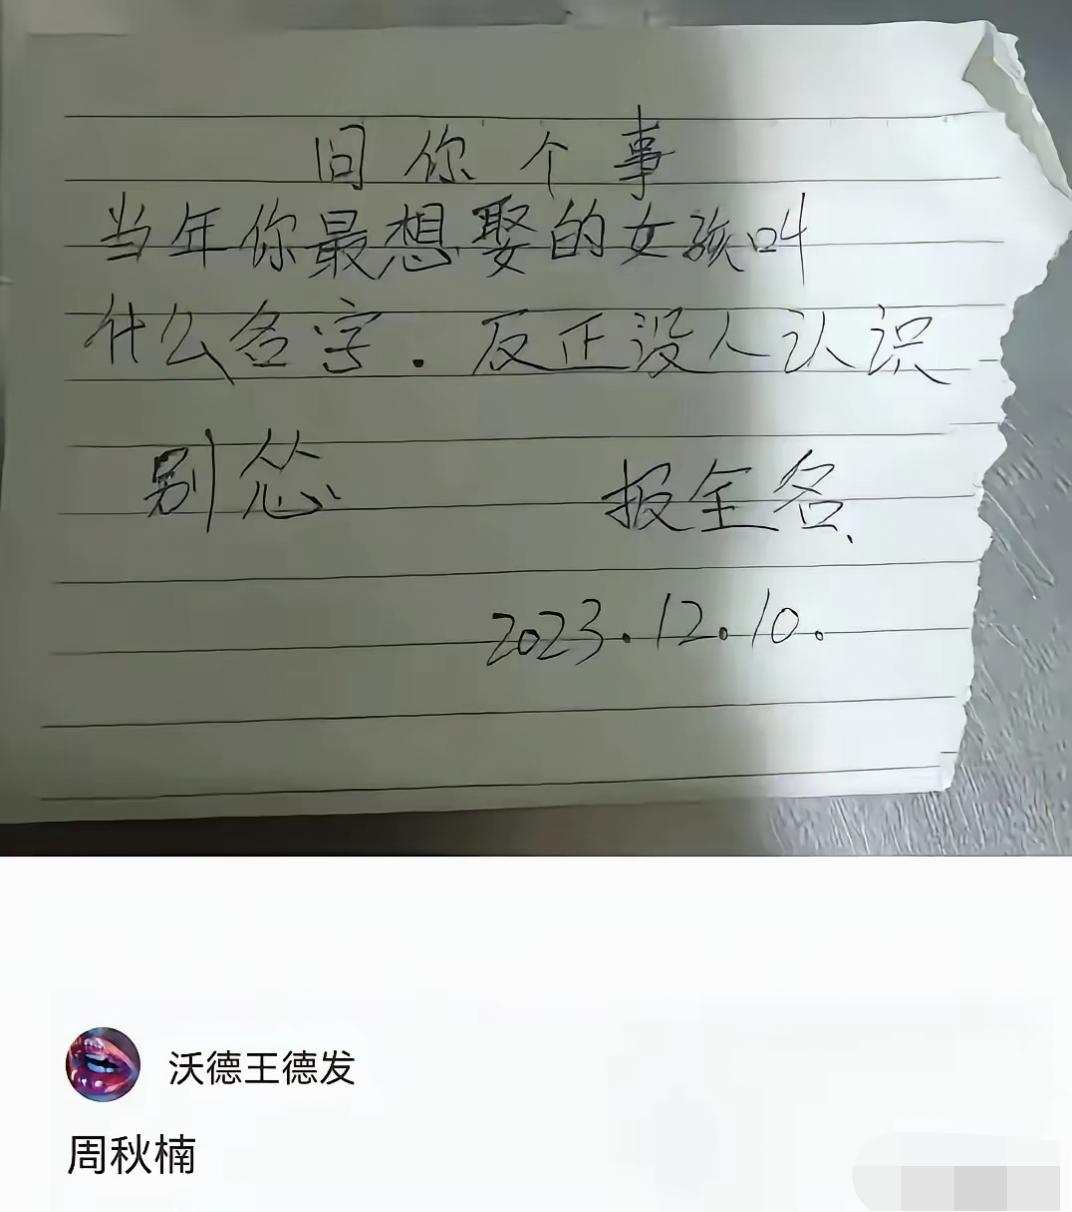 问你个事
当年你最想娶的女孩叫
什么名字.反正没人认识
别怂 报全名、
2023.12.10.
沃德王德发
周秋楠